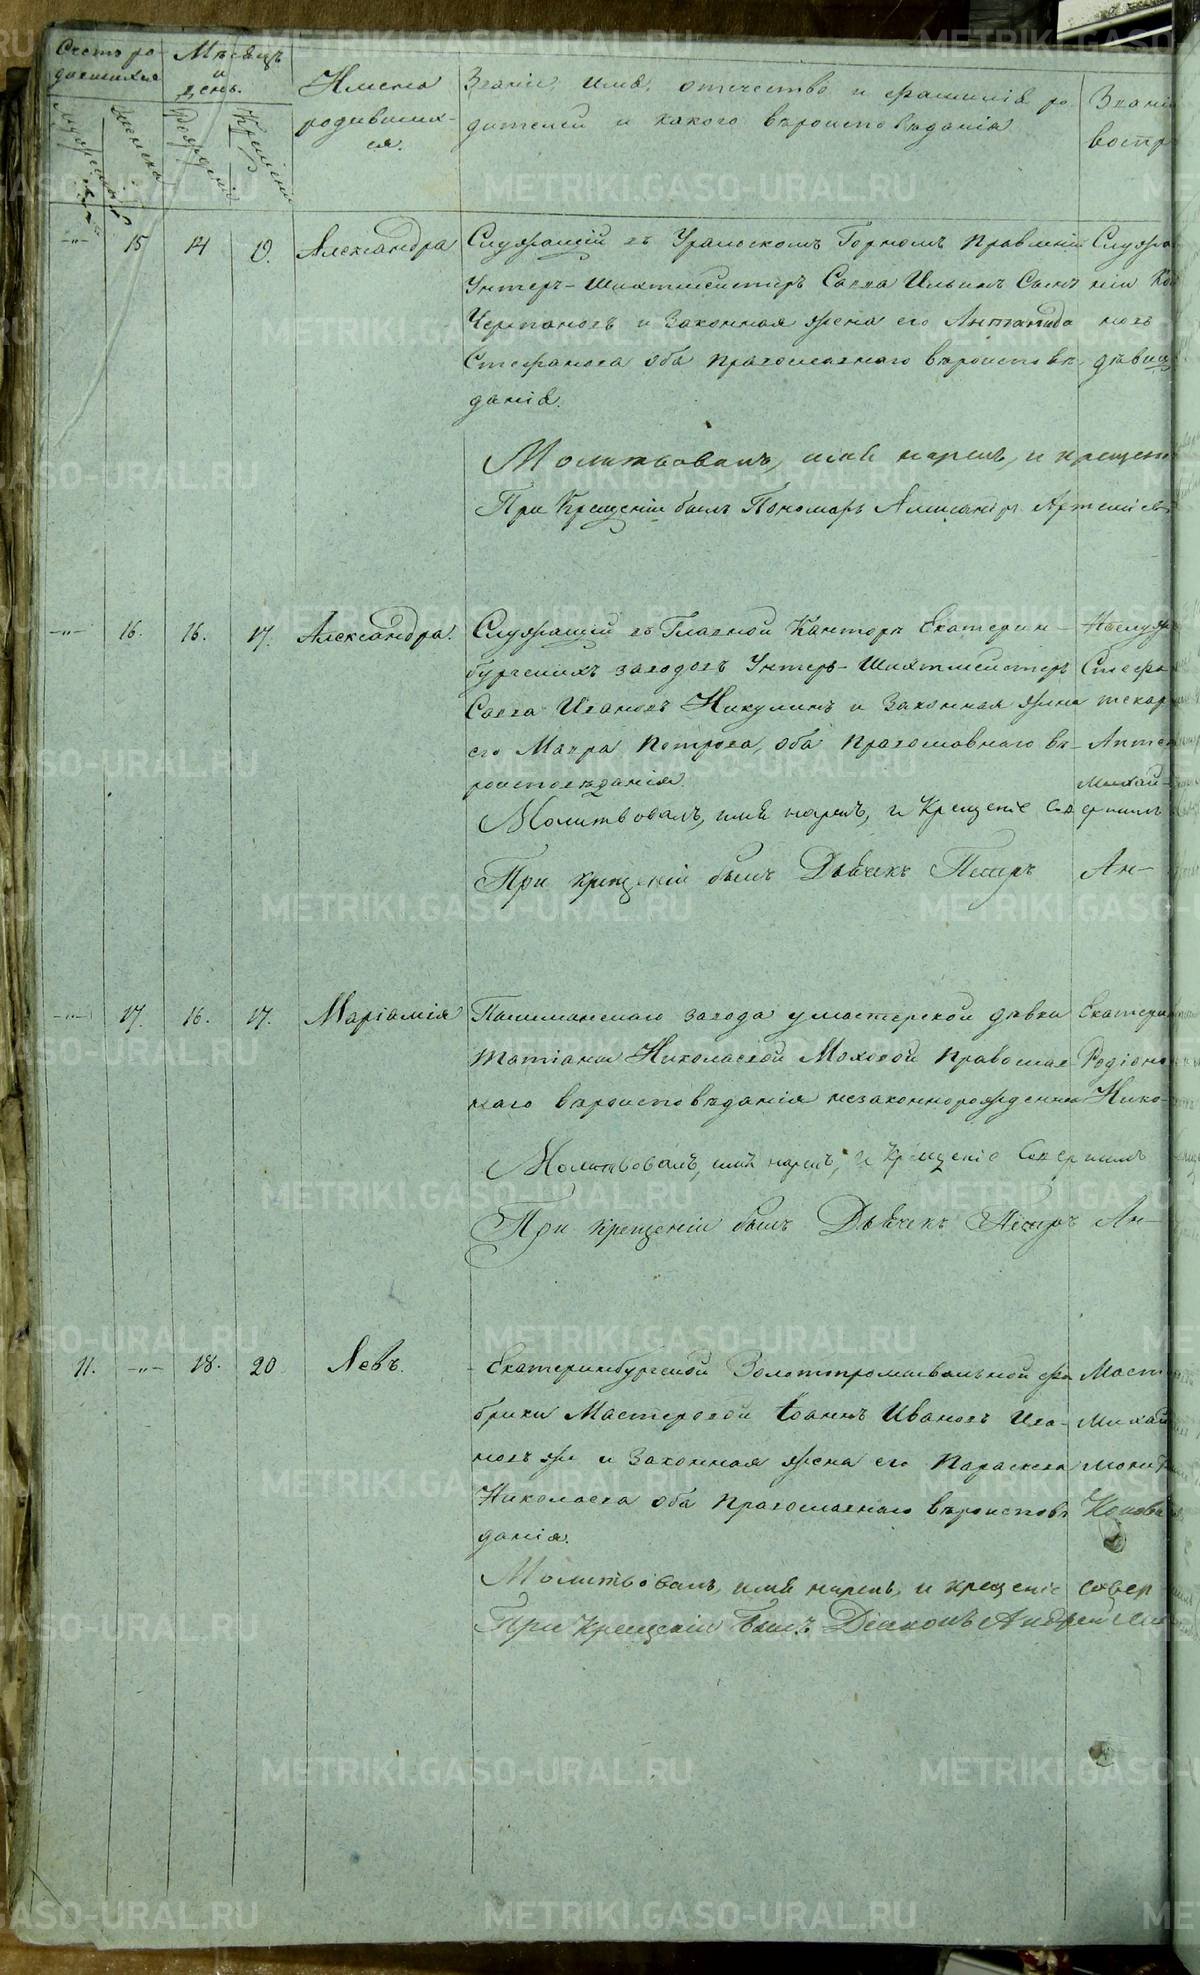 Счетъ ро-
дившихся
Мѣсяцъ
и
день.
Имена
родивших-
ся.
Званіе, имя, отчество и фамилія ро-
дителей и какого вѣроисповѣданія
Звані
воспр
Мужеска
Женска
Рожденія
Крещенія
15 14 Александра
Служащій въ Уральскомъ Горномъ Правленіи
Унтеръ-Шихтмейстеръ Савва Ильинъ Сынъ
Черепановъ и Законная жена его
Стефанова оба православнаго вѣроисповѣ-
данія.
Служа
новъ
дѣвиц
Молитвовалъ, имя нарекъ, и крещені
При Крещеніи былъ Пономарь Александръ Артеміев
16. 16. 17. Александра.
Служащій въ Главной Канторѣ Екатерин-
бургскихъ заводовъ Унтеръ-Шихтмейстеръ
Савва Ивановъ Никулинъ и Законная жена
его Мавра Петрова, оба православнаго вѣ-
роисповѣданія.
Неслуж
Стефа
текар
Аптек
Михай-
Молитвовалъ, имя нарекъ, и Крещеніе совершилъ
При крещеніи былъ Дьячекъ Петръ Ан-
17. 16. 17. Маріамія
завода умастерской дѣвки
Татіаны Николаевой Моховой Православ-
наго вѣроисповѣданія незаконнорожденна
Екатери
Родіоно
Нико-
Молитвовалъ, имя нарекъ, и Крещеніе Совершилъ
При крещеніи былъ Дьячекъ Петръ Ан-
11. 18. 20 Левъ.
Екатеринбургской Золотопромывальной фа
брики Мастеровой Іоаннъ Ивановъ Ива-
новъ же и Законная жена его Параскева
Николаева оба Православнаго вѣроисповѣ
данія.
Маст
Михай
Молитвовалъ, имя нарекъ, и крещеніе совер-
При Крещеніи былъ Діаконъ Андрей
METRIKI.GASO-URAL.RU